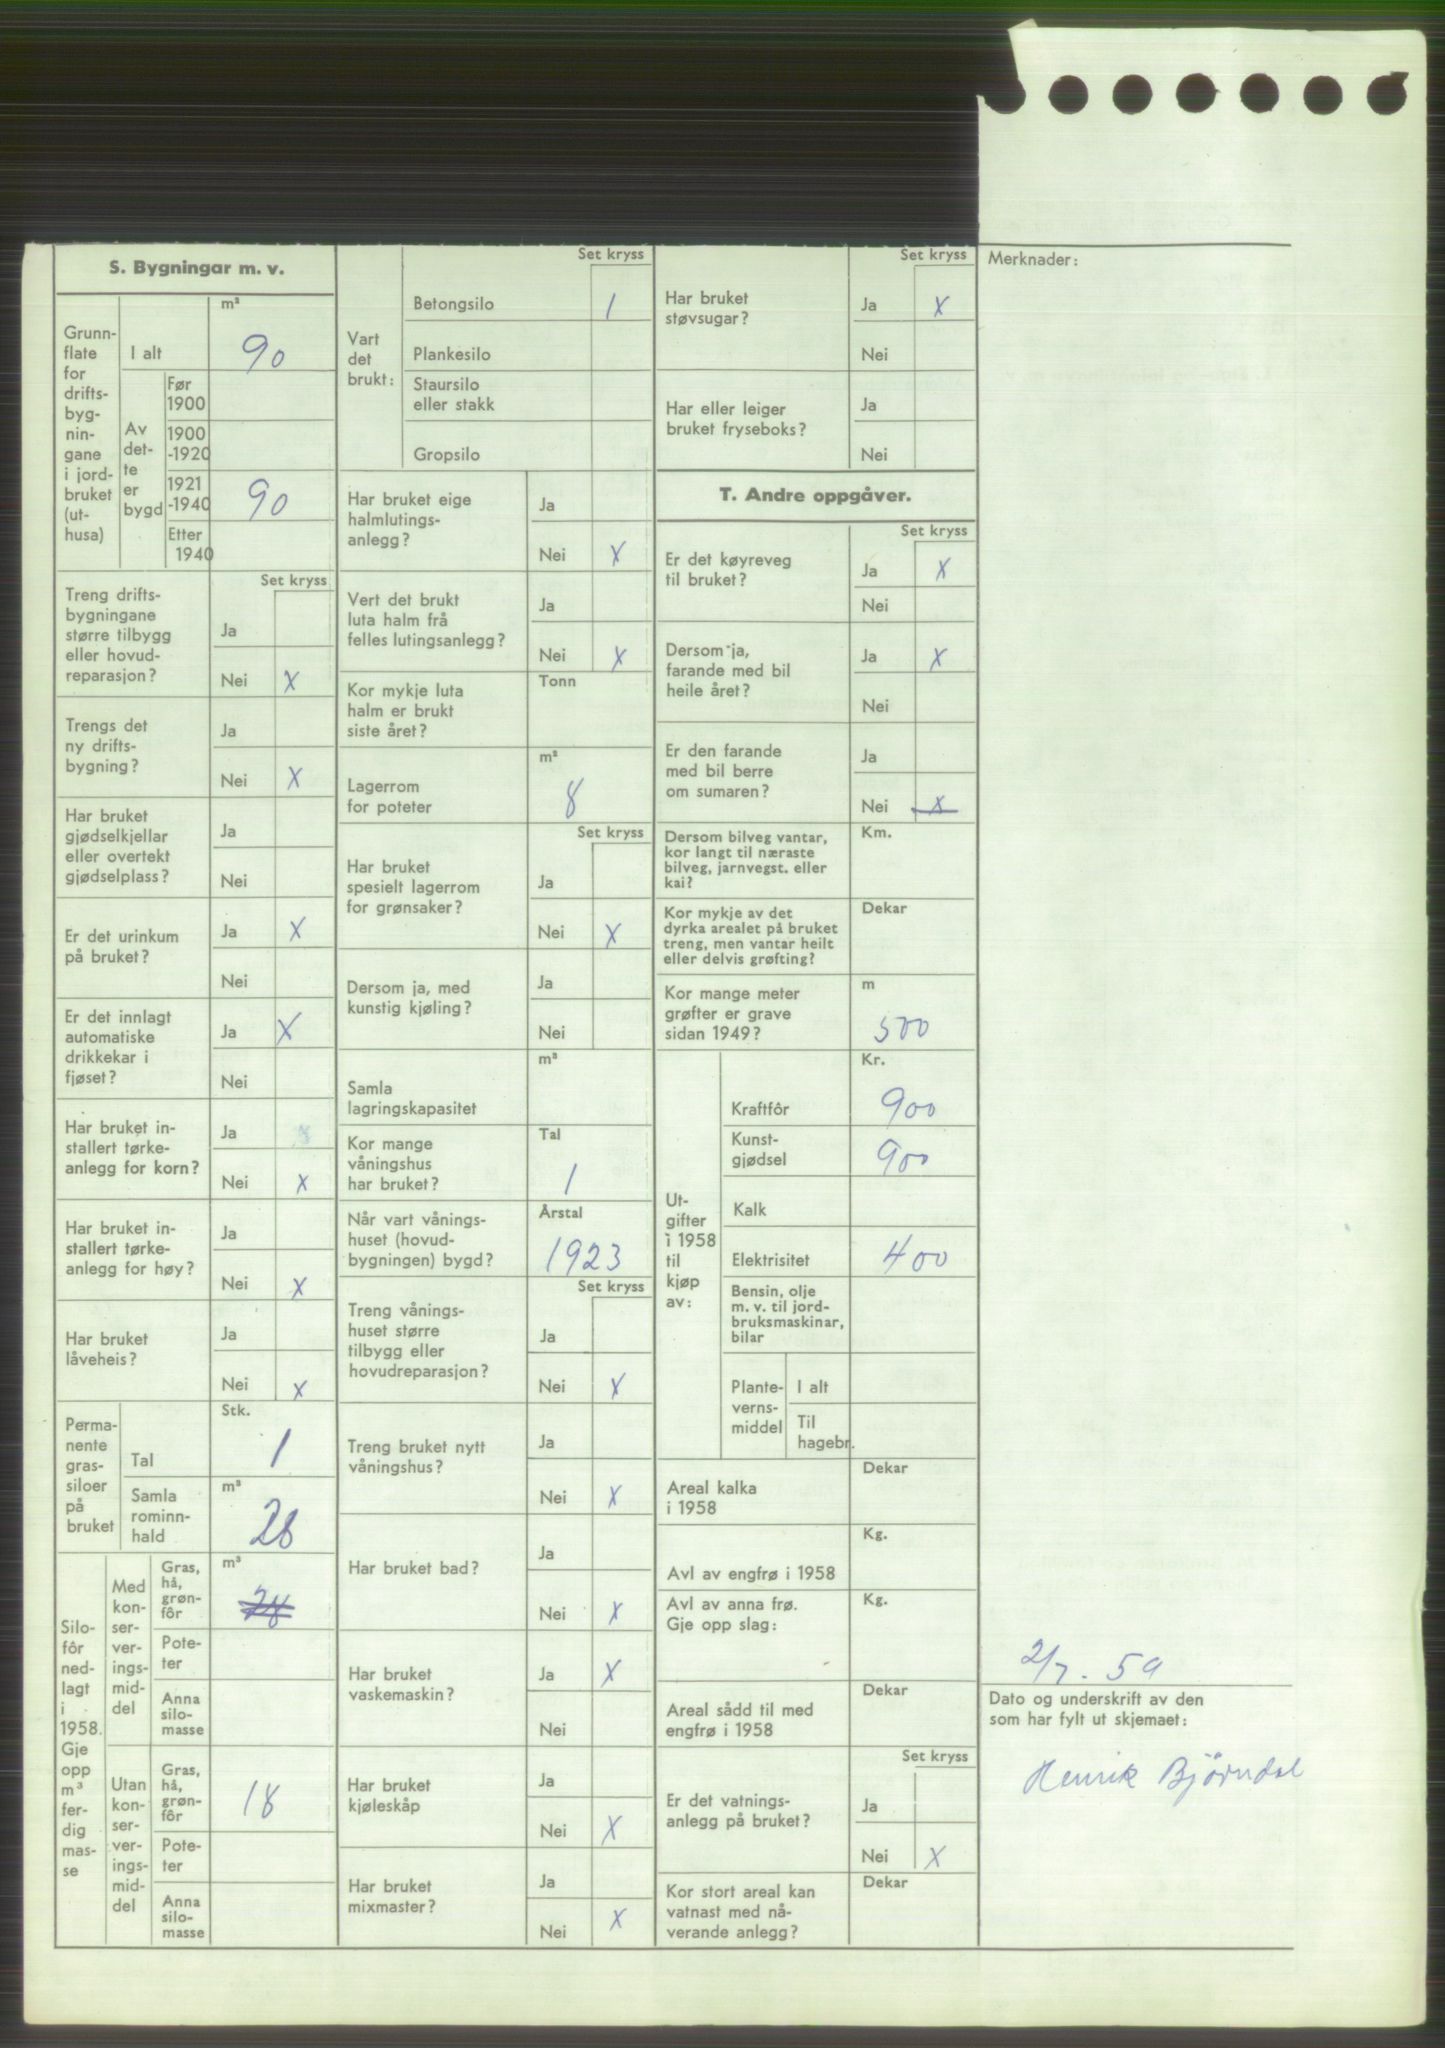 S. Bygningar m. v.
Grunn-
flate
for
drifts-
byg-
nin-
gane
i jord-
bruket
(ut-
husa)
m²
I alt 90
Av
det-
te
er
bygd
Før
1900
1900
-1920
1921
-1940 90
Etter
1940
Set kryss
Treng drifts-
bygningane
større tilbygg
eller hovud-
reparasjon?
Ja
Nei X
Trengs det
ny drifts-
bygning?
Ja
Nei X
Har bruket
gjødselkjellar
eller overtekt
gjødselplass?
Ja
Nei
Er det urinkum
på bruket?
Ja X
Nei
Er det innlagt
automatiske
drikkekar i
fjøset?
Ja X
Nei
Har bruket in-
stallert tørke-
anlegg for korn?
Ja
Nei X
Har bruket in-
stallert tørke-
anlegg for høy?
Ja
Nei X
Har bruket
låveheis?
Ja
Nei X
Perma-
nente
gras-
siloer
på
bruket
Stk.
Tal 1
m³
Samla
rominn-
hald
28
Silo-
fôr
ned-
lagt
i
1958.
Gje
opp
m³
fer-
dig
mas-
se
Med
kon-
ser-
ver-
ings-
mid-
del
m³
Gras,
hå,
grøn-
fôr
28
Pote-
ter
Anna
silo-
masse
Utan
kon-
ser-
ver-
ings-
mid-
del
Gras,
hå,
grøn-
fôr
18
Pote-
ter
Anna
silo-
masse
Set kryss
Vart
det
brukt:
Betongsilo 1
Plankesilo
Staursilo
eller stakk
Gropsilo
Har bruket eige
halmlutings-
anlegg?
Ja
Nei X
Vert det brukt
luta halm frå
felles lutingsanlegg?
Ja
Nei X
Kor mykje luta
halm er brukt
siste året?
Tonn
Lagerrom
for poteter
m³
8
Set kryss
Har bruket
spesielt lagerrom
for grønsaker?
Ja
Nei X
Dersom ja, med
kunstig kjøling?
Ja
Nei
Samla
lagringskapasitet
m³
Kor mange
våningshus
har bruket?
Tal
1
Når vart vånings-
huset (hovud-
bygningen) bygd?
Årstal
1923
Set kryss
Treng vånings-
huset større
tilbygg eller
hovudreparasjon?
Ja
Nei X
Treng bruket nytt
våningshus?
Ja
Nei X
Har bruket bad?
Ja
Nei X
Har bruket
vaskemaskin?
Ja X
Nei
Har bruket
kjøleskåp
Ja
Nei X
Har bruket
mixmaster?
Ja
Nei X
Set kryss
Har bruket
støvsugar?
Ja X
Nei
Har eller leiger
bruket fryseboks?
Ja
Nei
T. Andre oppgåver.
Set kryss
Er det køyreveg
til bruket?
Ja X
Nei
Dersom ja,
farande med bil
heile året?
Ja X
Nei
Er den farande
med bil berre
om sumaren?
Ja
Nei X
Dersom bilveg vantar,
kor langt til næraste
bilveg, jarnvegst. eller
kai?
Km.
Kor mykje av det
dyrka arealet på bruket
treng, men vantar heilt
eller delvis grøfting?
Dekar
Kor mange meter
grøfter er grave
sidan 1949?
m
500
Ut-
gifter
i 1958
til
kjøp
av:
Kr.
Kraftfôr 900
Kunst-
gjødsel 900
Kalk
Elektrisitet 400
Bensin, olje
m. v. til jord-
bruksmaskinar,
bilar
Plante-
verns-
middel
I alt
Til
hagebr.
Areal kalka
i 1958
Dekar
Avl av engfrø i 1958
Kg.
Avl av anna frø.
Gje opp slag:
Kg.
Areal sådd til med
engfrø i 1958
Dekar
Set kryss
Er det vatnings-
anlegg på bruket?
Ja
Nei X
Kor stort areal kan
vatnast med nå-
verande anlegg?
Dekar
Merknader:
2/7. 59
Dato og underskrift av den
som har fylt ut skjemaet:
Henrik Bjørndal